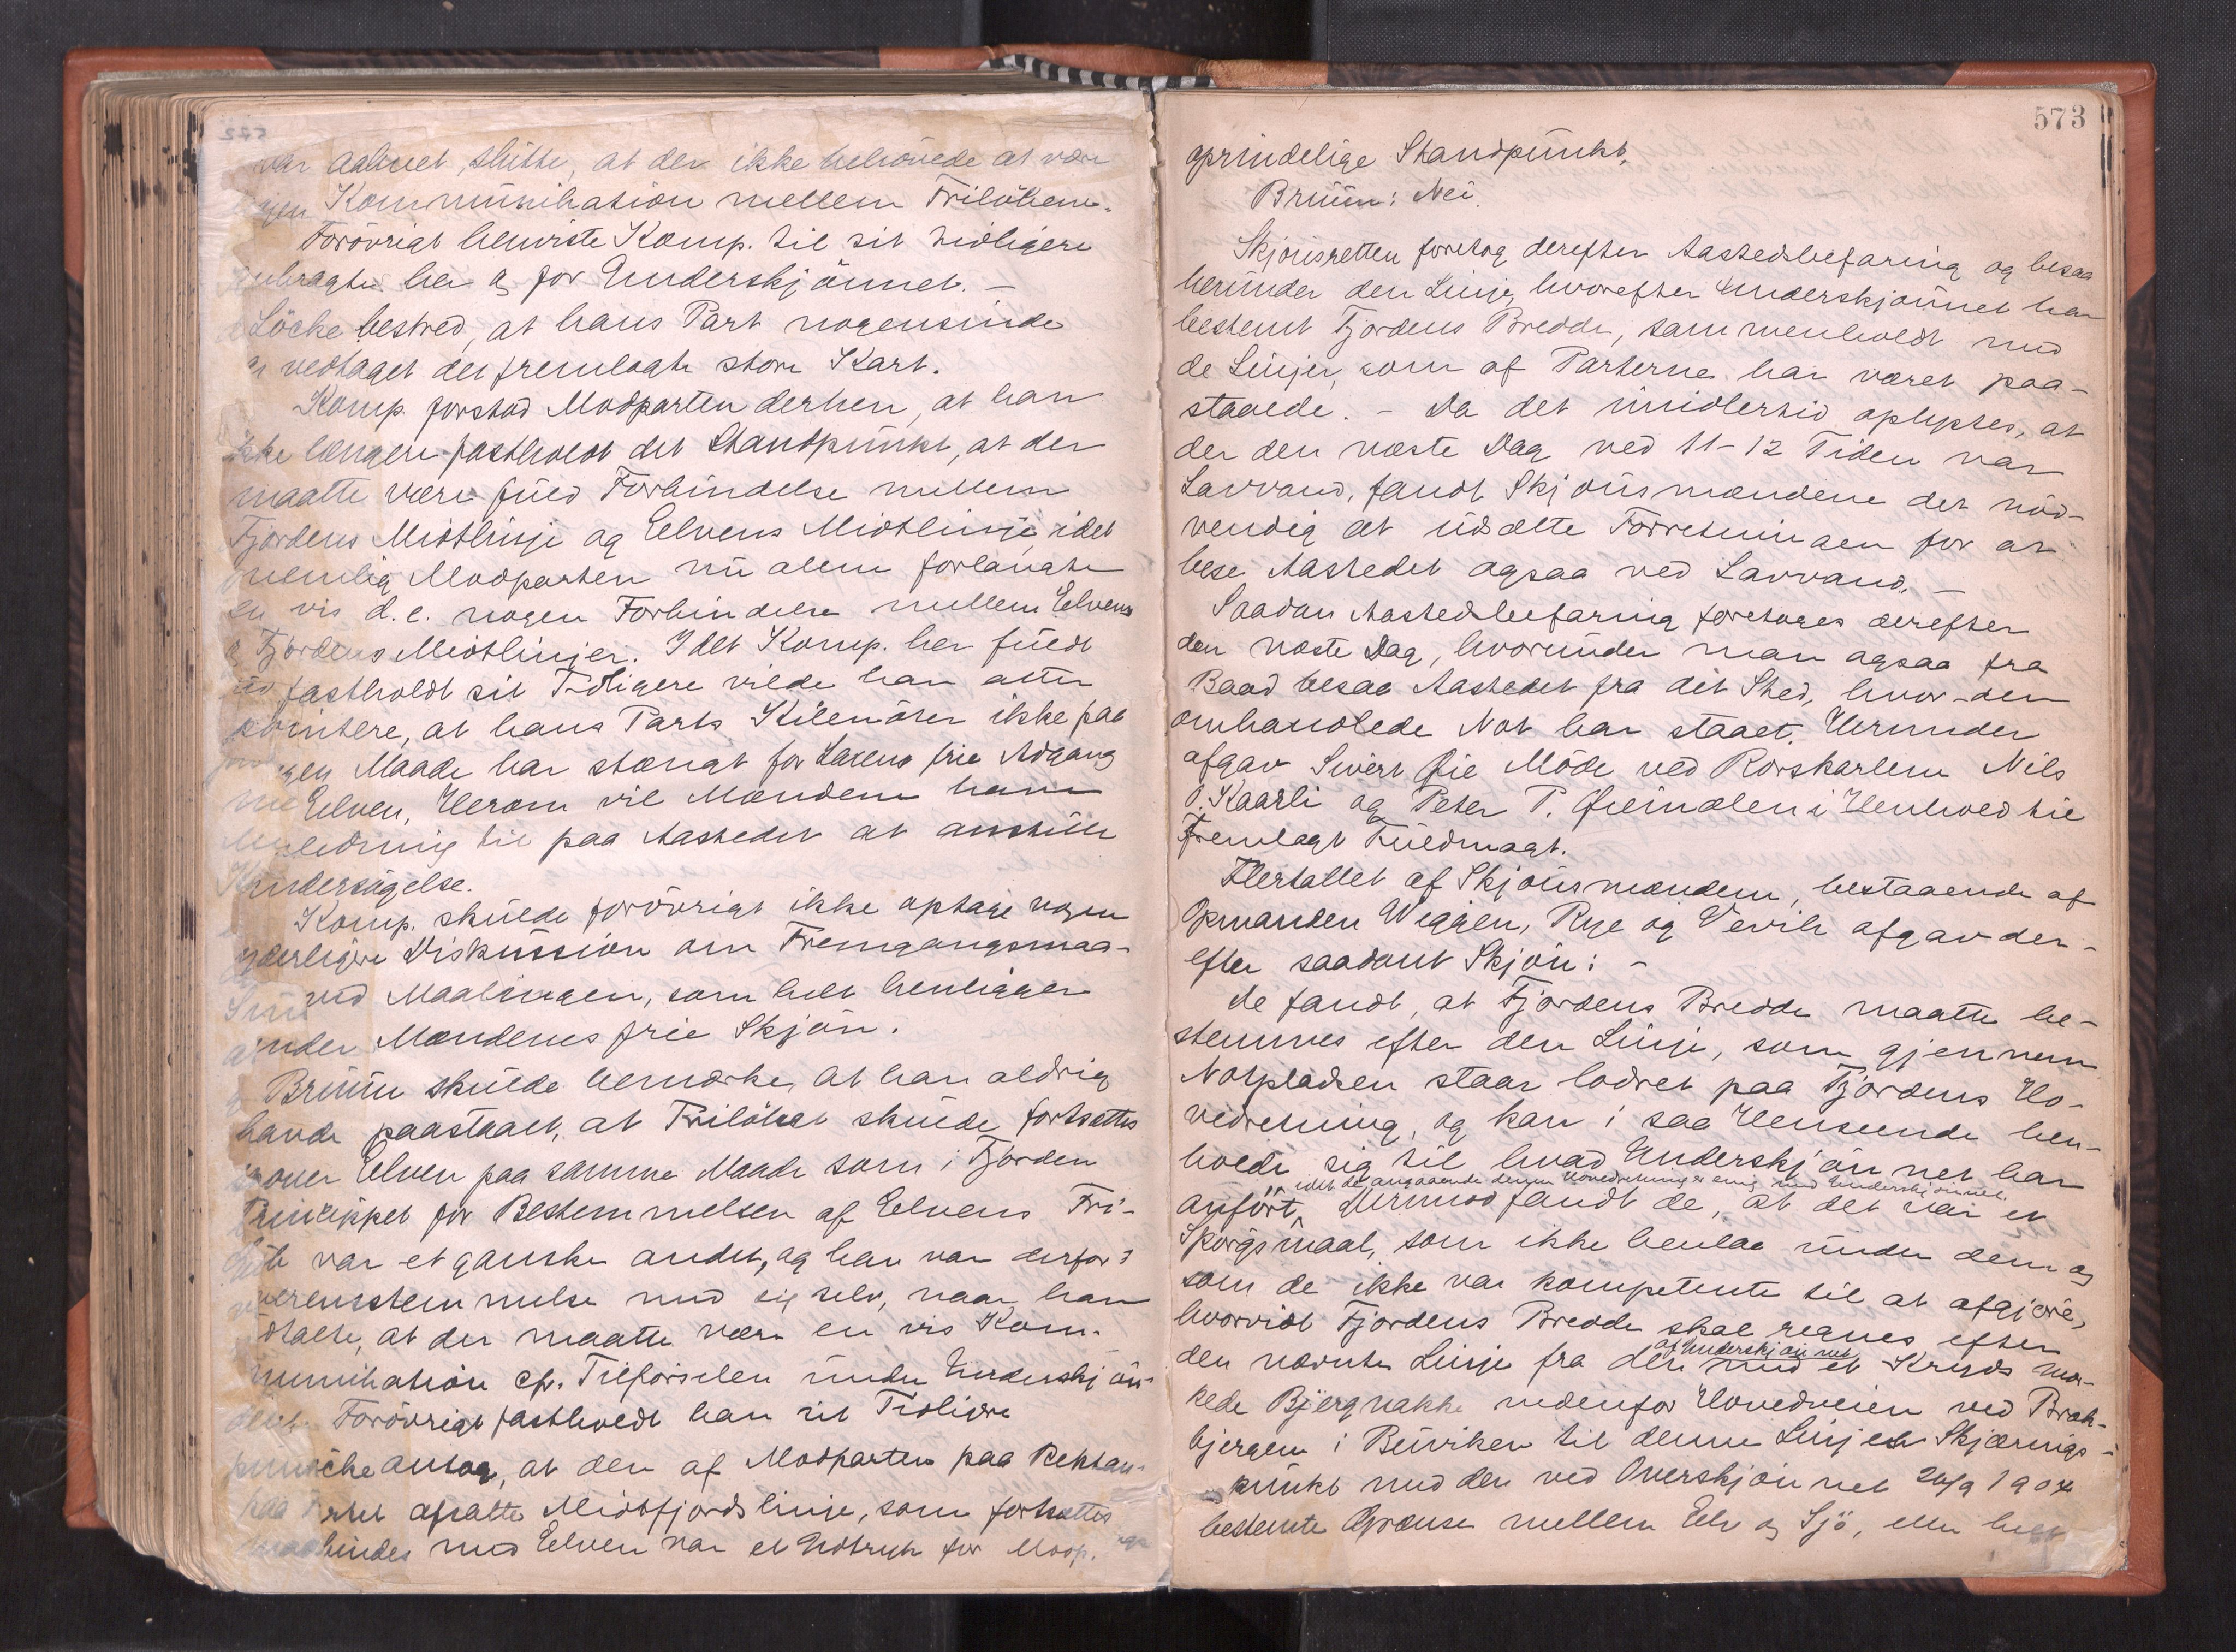 var aabnet, slutte, at der ikke behövede at være
Kommunikation mellem Friløbene.
Forövrigt henviste Komp. til sit tidligere
anbragte her og for Underskjönnet. –
Löcke bestred, at hans Part nogensinde
vedtaget det fremlagte store Kart.
Komp. forstod Modparten derhen, at han
ikke længere fastholdt det Standpunkt, at der
maatte være fuld Forbindelse mellem
Fjordens Midtlinje og Elvens Midtlinje, idet
nemlig Modparten nu alene forlangte
en vis d.e. nogen Forbindelse mellem Elvens
og Fjordens Midtlinjer. Idet Komp. her fuldt
ud fastholdt sit Tidligere vilde han atter
pointere, at hans Parts Kilenöter ikke paa
nogen Maade har stængt for Laxens frie Adgang
Elven, Herom vil Mændene have
Anledning til paa Aastedet at anstille
Undersögelse.
Komp. skulde forövrigt ikke optage nogen
yderligere Diskussion om Fremgangsmaa-
ved Maalingen, som helt henligger
under Mændenes frie Skjön.
Bruun skulde bemærke, at han aldrig
havde paastaaet, at Friløbet skulde fortsættes
over Elven paa samme Maade som i Fjorden
Princippet for Bestemmelsen af Elvens Fri-
löb var et ganske andet, og han var derfor i
overensstemmelse med sig selv, naar han
udtalte, at der maatte være en vis Kom-
munikation cfr. Tilförselen under Underskjön-
Forövrigt fastholdt han sit Tidligere
antog, at den af Modparten paa Rektan-
afsatte Midtfjordslinje, som fortsættes
med Elven var et Udtryk for Modp.
573
oprindelige Standpunkt.
Bruun: Nei.
Skjönsretten foretog derefter Aastedsbefaring og besaa
herunder den Linje, hvorefter Underskjönnet har
bestemt Fjordens Bredde, sammenholdt med
de Linjer, som af Parterne har været paa-
staaede. – Da det imidlertid oplystes, at
der den næste Dag ved 11-12 Tiden var
Lavvand, fandt Skjönsmændene det nöd-
vendig at udsætte Forretningen for at
bese Aastedet ogsaa ved Lavvand. –
Saadan Aastedsbefaring foretoges derefter
den næste Dag, hvorunder man ogsaa fra
Baad besaa Aastedet fra det Sted, hvor den
omhandlede Not har staaet. Herunder
afgav Sivert Øie Möde ved Rorskarlene Nils
O. Kaarli og Peter P. Øieindalen i Henhold til
fremlagt Fuldmagt.
Flertallet af Skjönsmændene, bestaaende af
Opmanden Weggen, Rye og Vevik afgav der-
efter saadant Skjön: –
De fandt, at Fjordens Bredde maatte be-
stemmes efter den Linje, som gjennem
Notpladsen staar lodret paa Fjordens Ho-
vedretning, og kan i saa Henseende hen-
holde sig til, hvad Underskjönnet har
idet de angaaende denne Hovedretning er enig med Underskjönnet.
anfört, Derimod fandt de, at det var et
Spörgsmaal, som ikke henlaa under dem og
som de ikke var kompetente til at afgjöre,
hvorvidt Fjordens Bredde skal regnes efter
af Underskjönnet
den nævnte Linje fra den med et Kryds mær-
kede Bjergnakke nedenfor Hovedveien ved Brak-
bjergen i Buviken til denne Linjes Skjærings-
punkt med den ved Overskjönnet 20/9 1904
bestemte Grænse mellem Elv og Sjö, eller helt